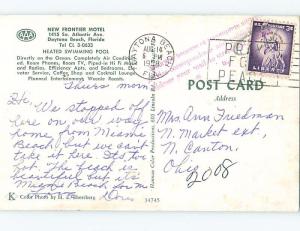 AAA
NEW FRONTIER MOTEL
1415 So. Atlantic Ave.
Daytona Beach, Florida
Tel CL 3-0633
HEATED SWIMMING POOL
Directly on the Ocean. Completely Air Condition-
ed. Room Phones, Room TV, Piped-in Hi Fi
and Radios. Efficiency Apts. and Bedrooms. Ele-
vator Service, Coffee Shop and Cocktail Lounge.
Planned Entertainment. Mobil Travel Guide
DAYTONA BEACH
AUG 14
PM
1959
FLA.
3¢
PRAY
FOR
PEACE
POST CARD
Address
Thurs morn
We stopped off
here on our way
home from Miami
Beach, but we can't
take it here. It's too
The beach is
beautiful but it's
Miami Beach for me
Dora
Mrs. Ann Friedman
N. Market ext,
N. Canton,
Ohio
2008
K
Color Photo by
34745